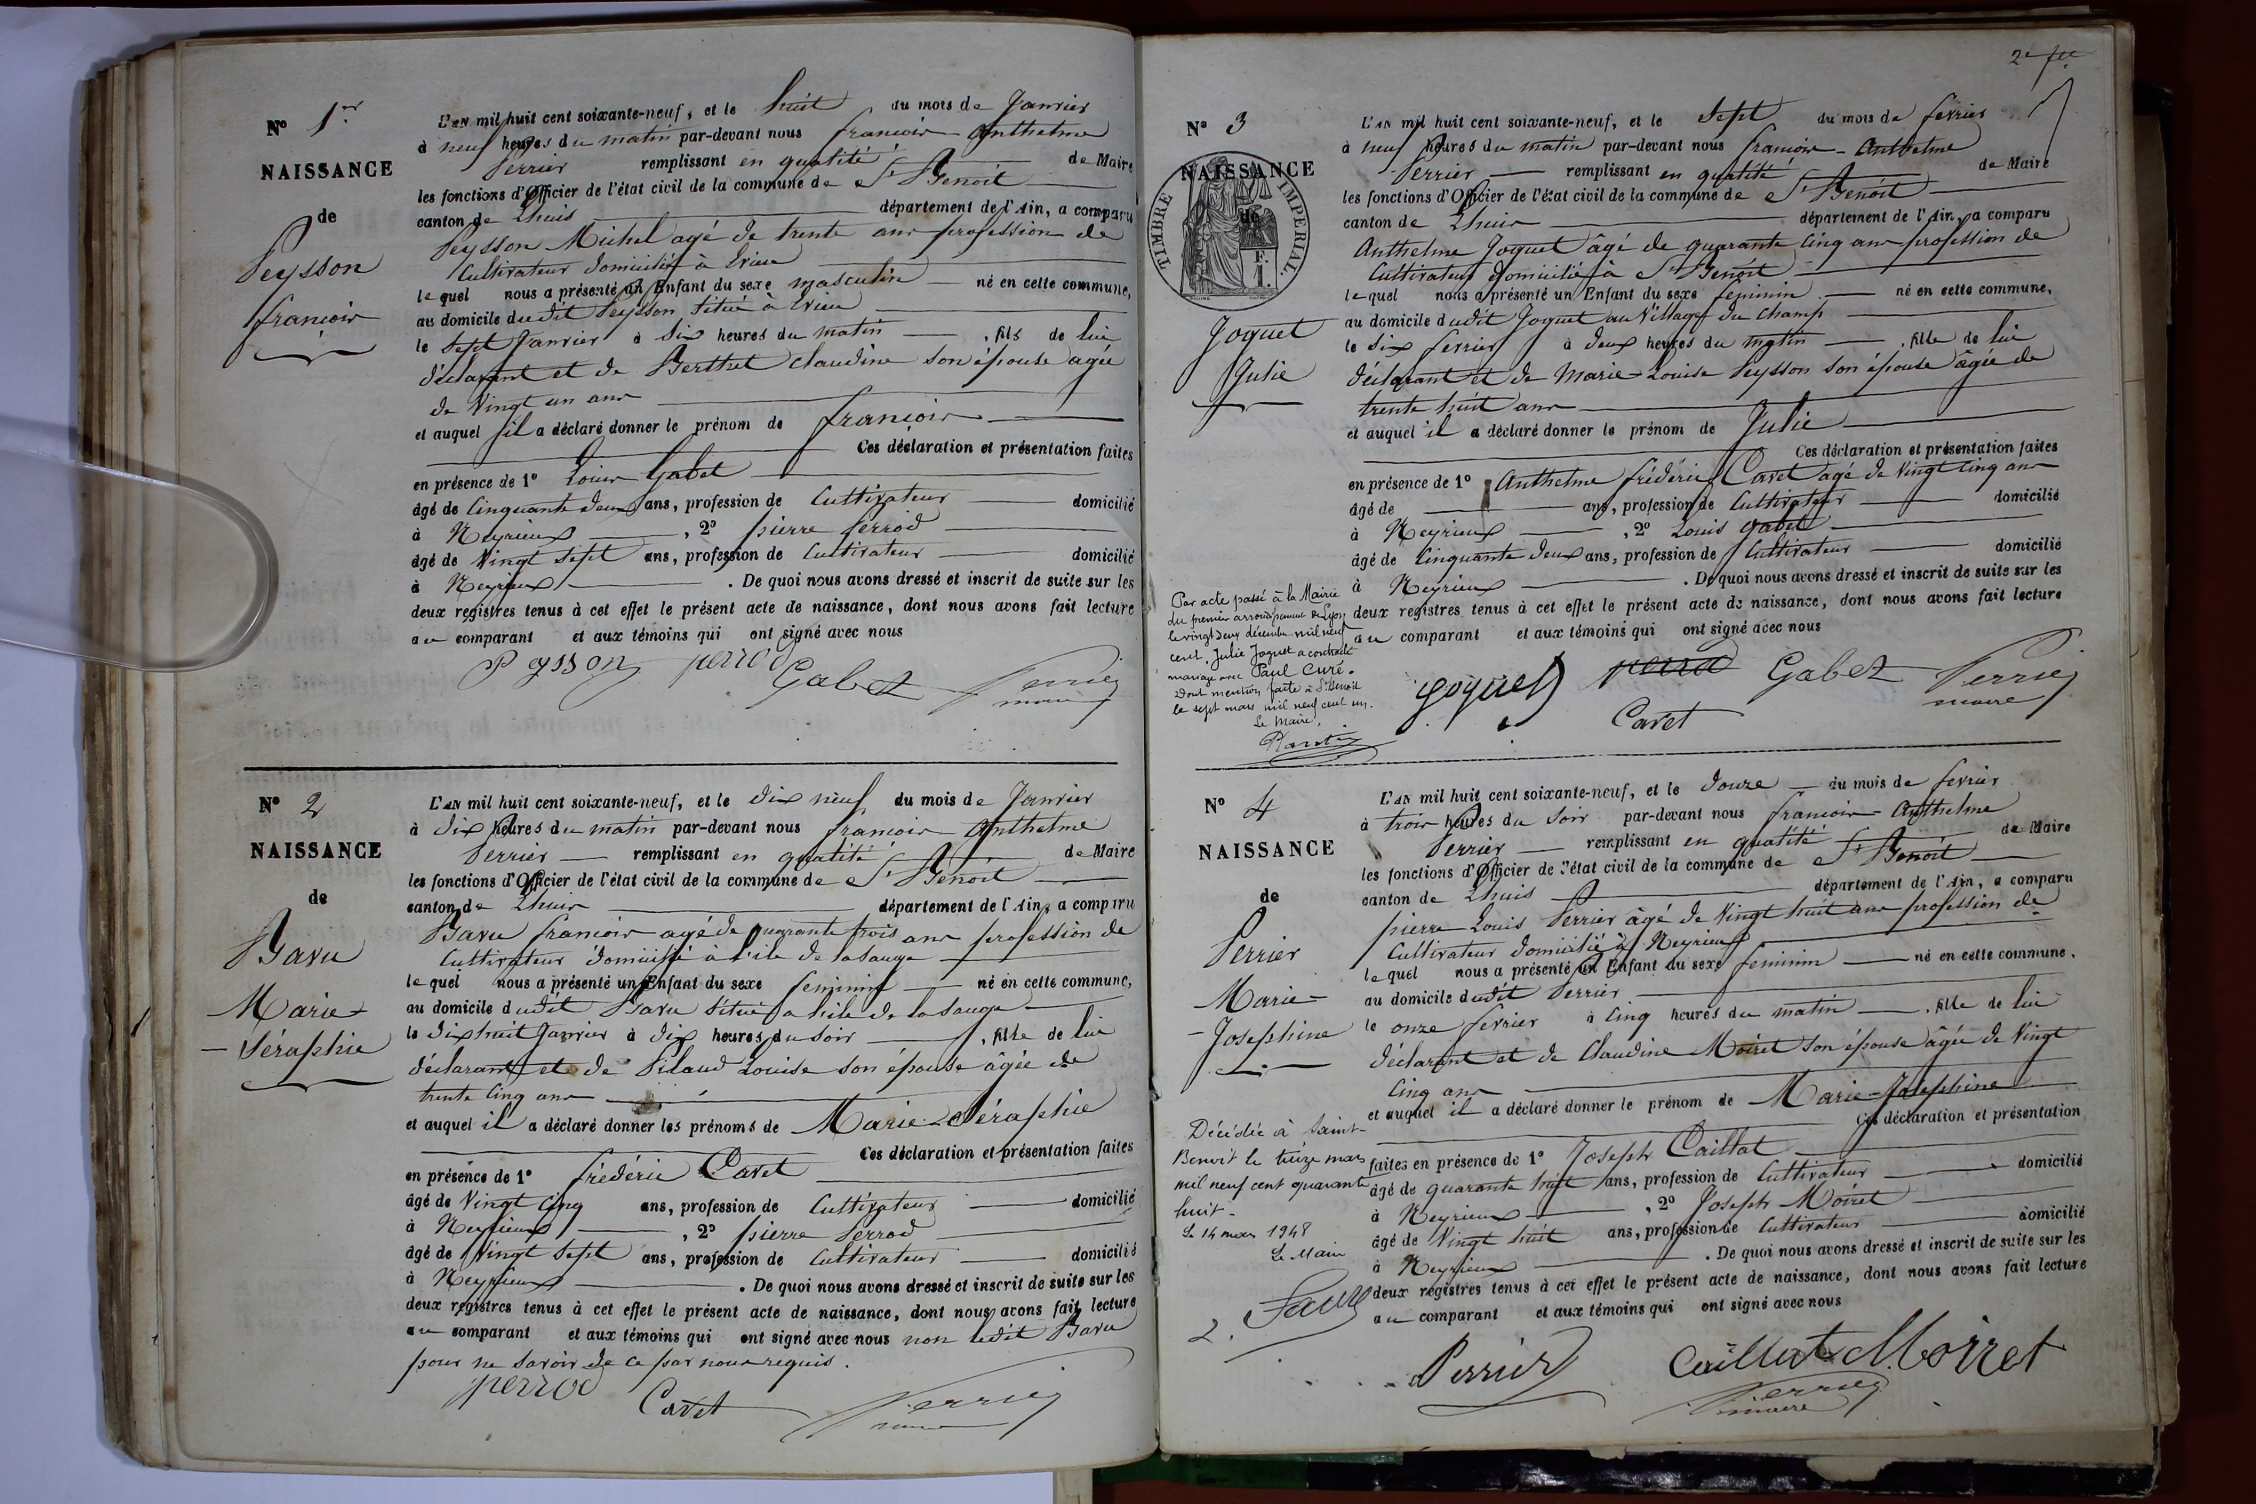 N° 1er
NAISSANCE
de
Peysson
francois
L'AN mil huit cent soixante-neuf, et le huit du mois de Janvier
à neuf heures du matin par-devant nous francois Anthelme
Perrier remplissant en qualité de Maire
les fonctions d'Officier de l'état civil de la commune de St Benoit
canton de Lhuis département de l'Ain, a comparu
Peysson Michel agé de trente ans profession de
Cultivateur domicilié à Evieu
lequel nous a présenté un Enfant du sexe masculin né en cette commune,
au domicile dudit Peysson situé à Evieu
le sept Janvier à six heures du matin , fils de lui
déclarant et de Berthet Claudine son épouse agée
de Vingt un ans
et auquel il a déclaré donner le prénom de francois
Ces déclaration et présentation faites
en présence de 1° Louis Gabet
âgé de Cinquante deux ans, profession de Cultivateur domicilié
à Neyrieux , 2° pierre perrod
âgé de Vingt sept ans, profession de Cultivateur domicilié
à Neyrieux . De quoi nous avons dressé et inscrit de suite sur les
deux registres tenus à cet effet le présent acte de naissance, dont nous avons fait lecture
au comparant et aux témoins qui ont signé avec nous
Peysson perrod Gabet Perrier
maire
N° 2
NAISSANCE
de
Bavu
Marie
- Séraphie
L'AN mil huit cent soixante-neuf, et le dix neuf du mois de Janvier
à dix heures du matin par-devant nous francois Anthelme
Perrier remplissant en qualité de Maire
les fonctions d'Officier de l'état civil de la commune de St Benoit
canton de Lhuis département de l'Ain, a comparu
Bavu francois agé de quarante trois ans profession de
Cultivateur domicilié à l'ile de la Sauge
lequel nous a présenté un Enfant du sexe feminin né en cette commune,
au domicile dudit Bavu situé a lile de la Sauge
le dix huit Janvier à dix heures du soir , fille de lui
déclarant et de Pilaud Louise son épouse âgée de
trente Cinq ans
et auquel il a déclaré donner les prénoms de Marie Séraphie
Ces déclaration et présentation faites
en présence de 1° frédéric Cavet
âgé de Vingt Cinq ans, profession de Cultivateur domicilié
à Neyrieux , 2° pierre perrod
âgé de Vingt sept ans, profession de Cultivateur domicilié
à Neyrieux . De quoi nous avons dressé et inscrit de suite sur les
deux registres tenus à cet effet le présent acte de naissance, dont nous avons fait lecture
au comparant et aux témoins qui ont signé avec nous non ledit Bavu
pour ne savoir de ce par nous requis.
perrod Cavet Perrier
maire
N° 3
NAISSANCE
de
TIMBRE IMPERIAL.
F.
1.
Joguet
Julie
L'AN mil huit cent soixante-neuf, et le sept du mois de fevrier
à neuf heures du matin par-devant nous francois - Anthelme
Perrier remplissant en qualité de Maire
les fonctions d'Officier de l'état civil de la commune de St Benoit
canton de Lhuis département de l'Ain, a comparu
Anthelme Joguet âgé de quarante Cinq ans profession de
Cultivateur domicilié à St Benoit
lequel nous a présenté un Enfant du sexe feminin né en cette commune,
au domicile dudit Joguet au Village du Champ
le six fevrier à deux heures du matin , fille de lui
déclarant et de Marie-Louise Peysson son épouse âgée de
trente huit ans
et auquel il a déclaré donner le prénom de Julie
Ces déclaration et présentation faites
en présence de 1° Anthelme frédéric Cavet agé de Vingt Cinq ans
âgé de ans, profession de Cultivateur domicilié
à Neyrieux , 2° Louis Gabet
âgé de Cinquante deux ans, profession de Cultivateur domicilié
à Neyrieux . De quoi nous avons dressé et inscrit de suite sur les
deux registres tenus à cet effet le présent acte de naissance, dont nous avons fait lecture
au comparant et aux témoins qui ont signé avec nous
Joguet perrod Gabet Perrier
maire
Cavet
Par acte passé à la Mairie
du premier arrondissement de Lyon
le vingt deux décembre mil neuf
cent, Julie Joguet a contracté
mariage avec Paul Curé.
Dont mention faite à St Benoit
le sept mars mil neuf cent un.
Le Maire,
N° 4
NAISSANCE
de
Perrier
Marie-
- Josephine
L'AN mil huit cent soixante-neuf, et le douze du mois de fevrier
à trois heures du soir par-devant nous francois - Anthelme
Perrier remplissant en qualité de Maire
les fonctions d'Officier de l'état civil de la commune de St Benoit
canton de Lhuis département de l'Ain, a comparu
pierre Louis Perrier âgé de Vingt huit ans profession de
Cultivateur domicilié à Neyrieux
lequel nous a présenté un Enfant du sexe feminin né en cette commune.
au domicile dudit Perrier
le onze fevrier à Cinq heures du matin , fille de lui
déclarant et de Claudine Moiret son épouse âgée de Vingt
Cinq ans
et auquel il a déclaré donner le prénom de Marie-Josephine
Ces déclaration et présentation
faites en présence de 1° Joseph Caillat
âgé de quarante huit ans, profession de Cultivateur domicilié
à Neyrieux , 2° Joseph Moiret
âgé de Vingt huit ans, profession de Cultivateur domicilié
à Neyrieux . De quoi nous avons dressé et inscrit de suite sur les
deux registres tenus à cet effet le présent acte de naissance, dont nous avons fait lecture
au comparant et aux témoins qui ont signé avec nous
Perrier Caillat Moiret
Perrier
maire
Décédée à Saint-
Benoit le treize mars
mil neuf cent quarante
huit -
Le 14 mars 1948
Le Maire
2.